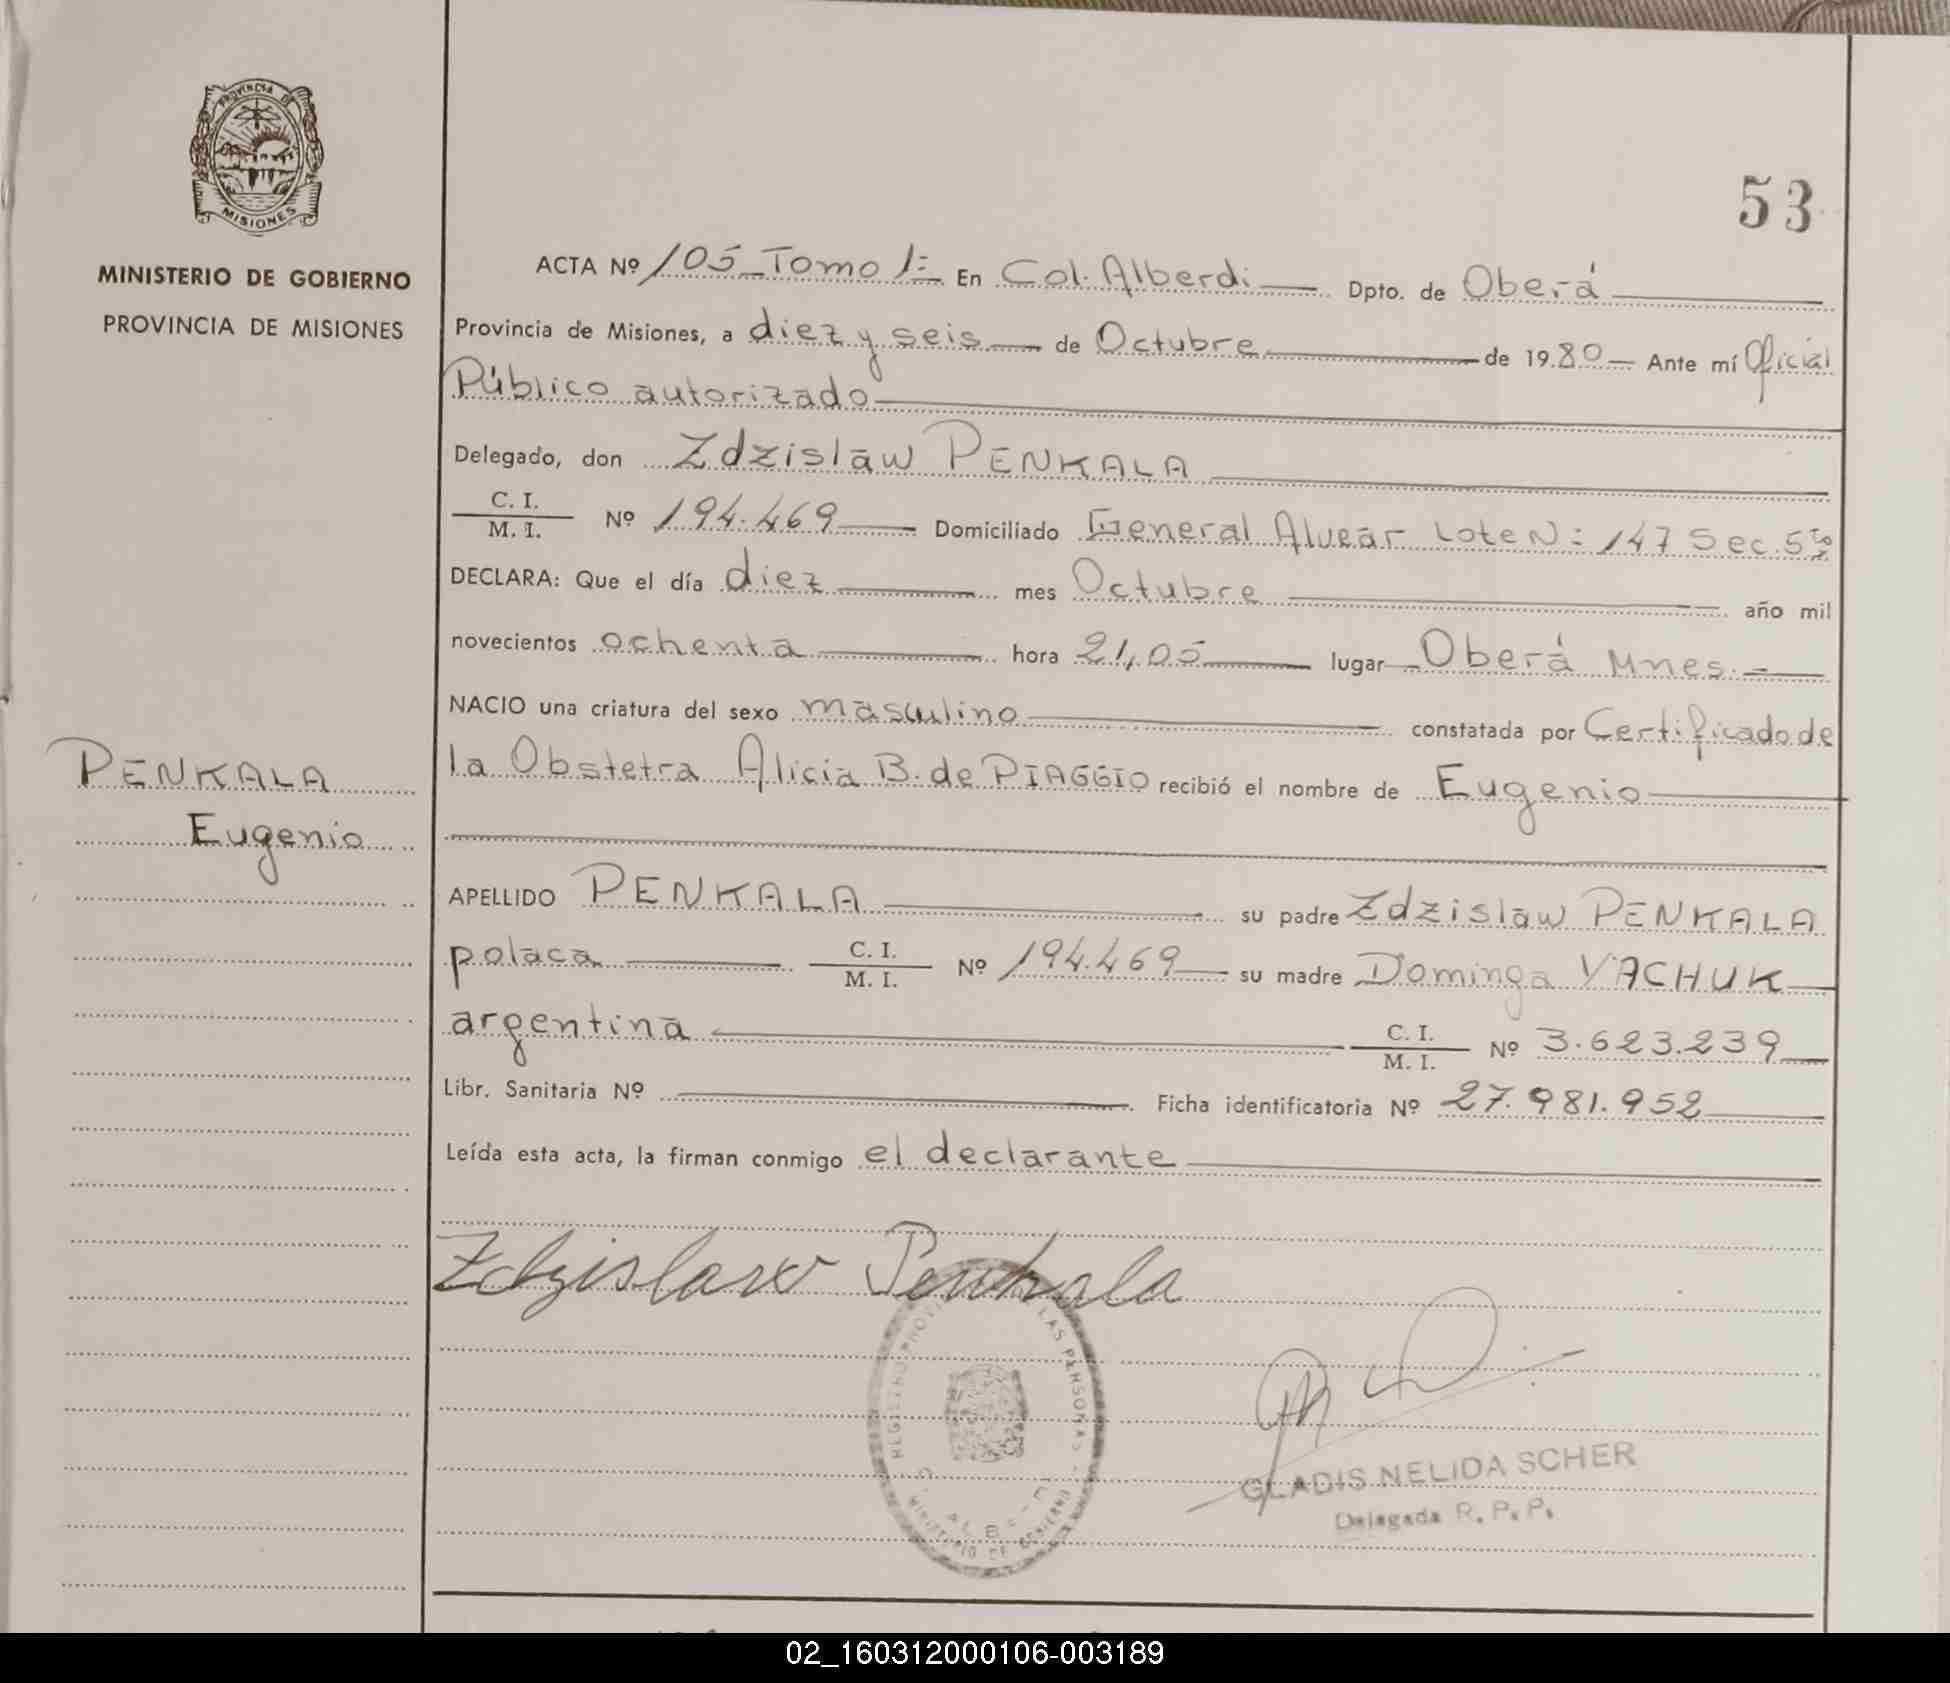 PROVINCIA DE
MISIONES
MINISTERIO DE GOBIERNO
PROVINCIA DE MISIONES
53
ACTA Nº 105 Tomo 1= En Col. Alberdi Dpto. de Oberá
Provincia de Misiones, a diez y seis de Octubre de 1980 Ante mí Oficial
Público autorizado
Delegado, don Zdzislaw PENKALA
C. I.
M. I. Nº 194.469 Domiciliado General Alvear Lote N: 147 Sec. 5ta
DECLARA: Que el día diez mes Octubre año mil
novecientos ochenta hora 21,05 lugar Oberá Mnes.
NACIO una criatura del sexo masculino constatada por Certificado de
la Obstetra Alicia B. de PIAGGIO recibió el nombre de Eugenio
PENKALA
Eugenio
APELLIDO PENKALA su padre Zdzislaw PENKALA
polaca C. I.
M. I. Nº 194.469 su madre Dominga YACHUK
argentina C. I.
M. I. Nº 3.623.239
Libr. Sanitaria Nº Ficha identificatoria Nº 27.981.952
Leída esta acta, la firman conmigo el declarante
Zdzislaw Penkala
LAS PERSONAS
GLADIS NELIDA SCHER
Delegada R. P. P.
02_160312000106-003189